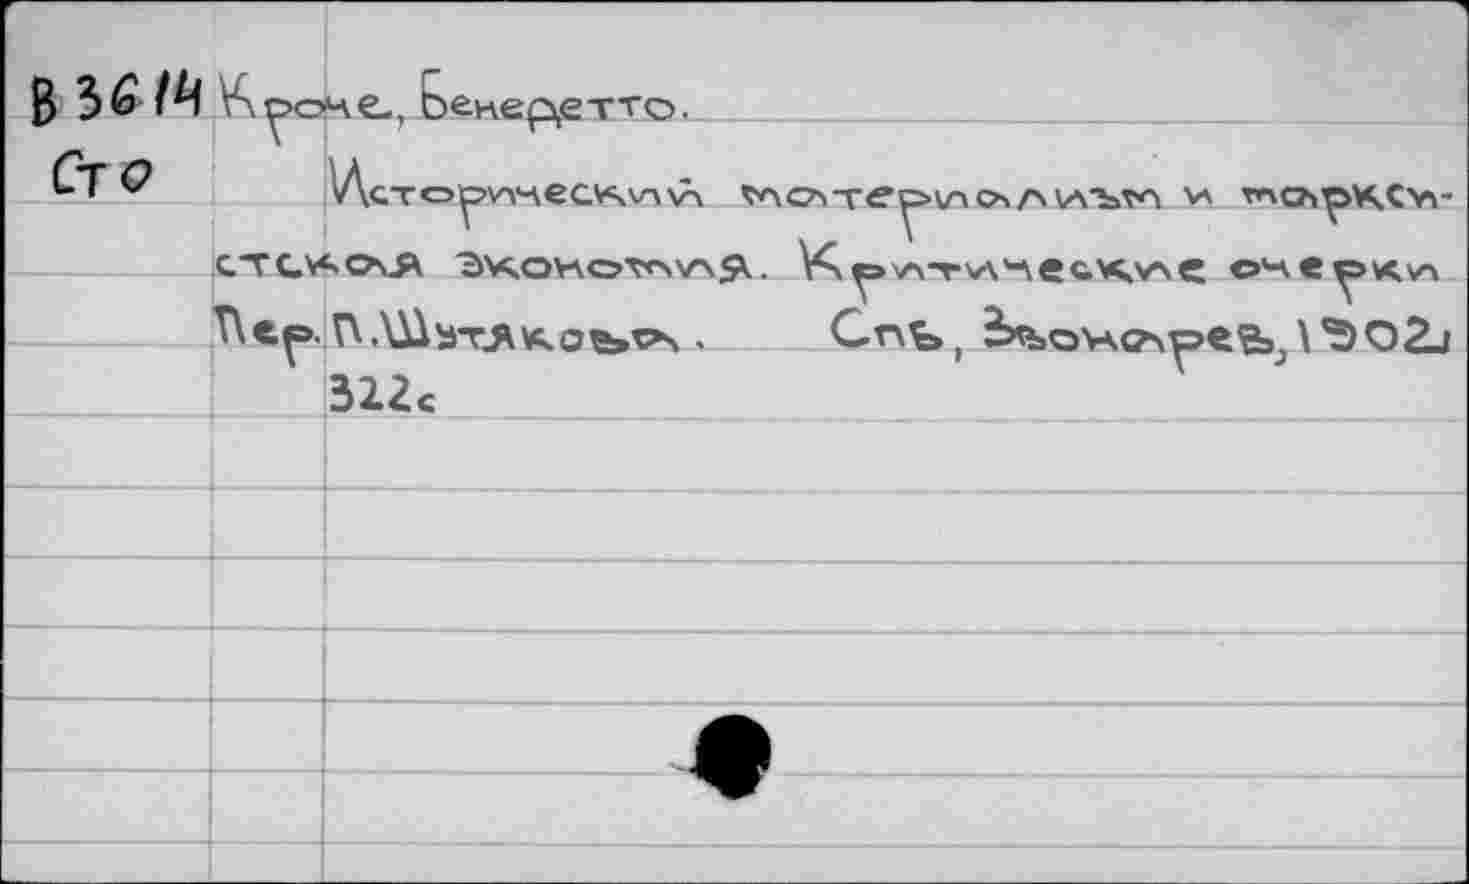 В36 14 Кроче, Бенедетто.
Сто Исторический материализм и маркси-
стская экономия. Критические очерки
Пер. П.Шутякова. Спб, Звонарев, 1902,
322с